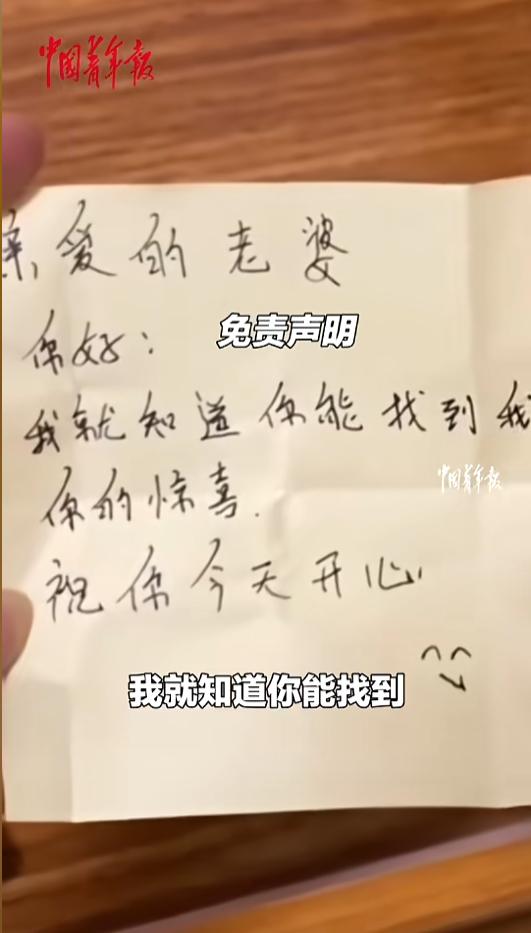 中国青年报
亲爱的老婆
免责声明
你好:
我就知道你能找到我
中国青年报
你的惊喜.
祝你今天开心
我就知道你能找到